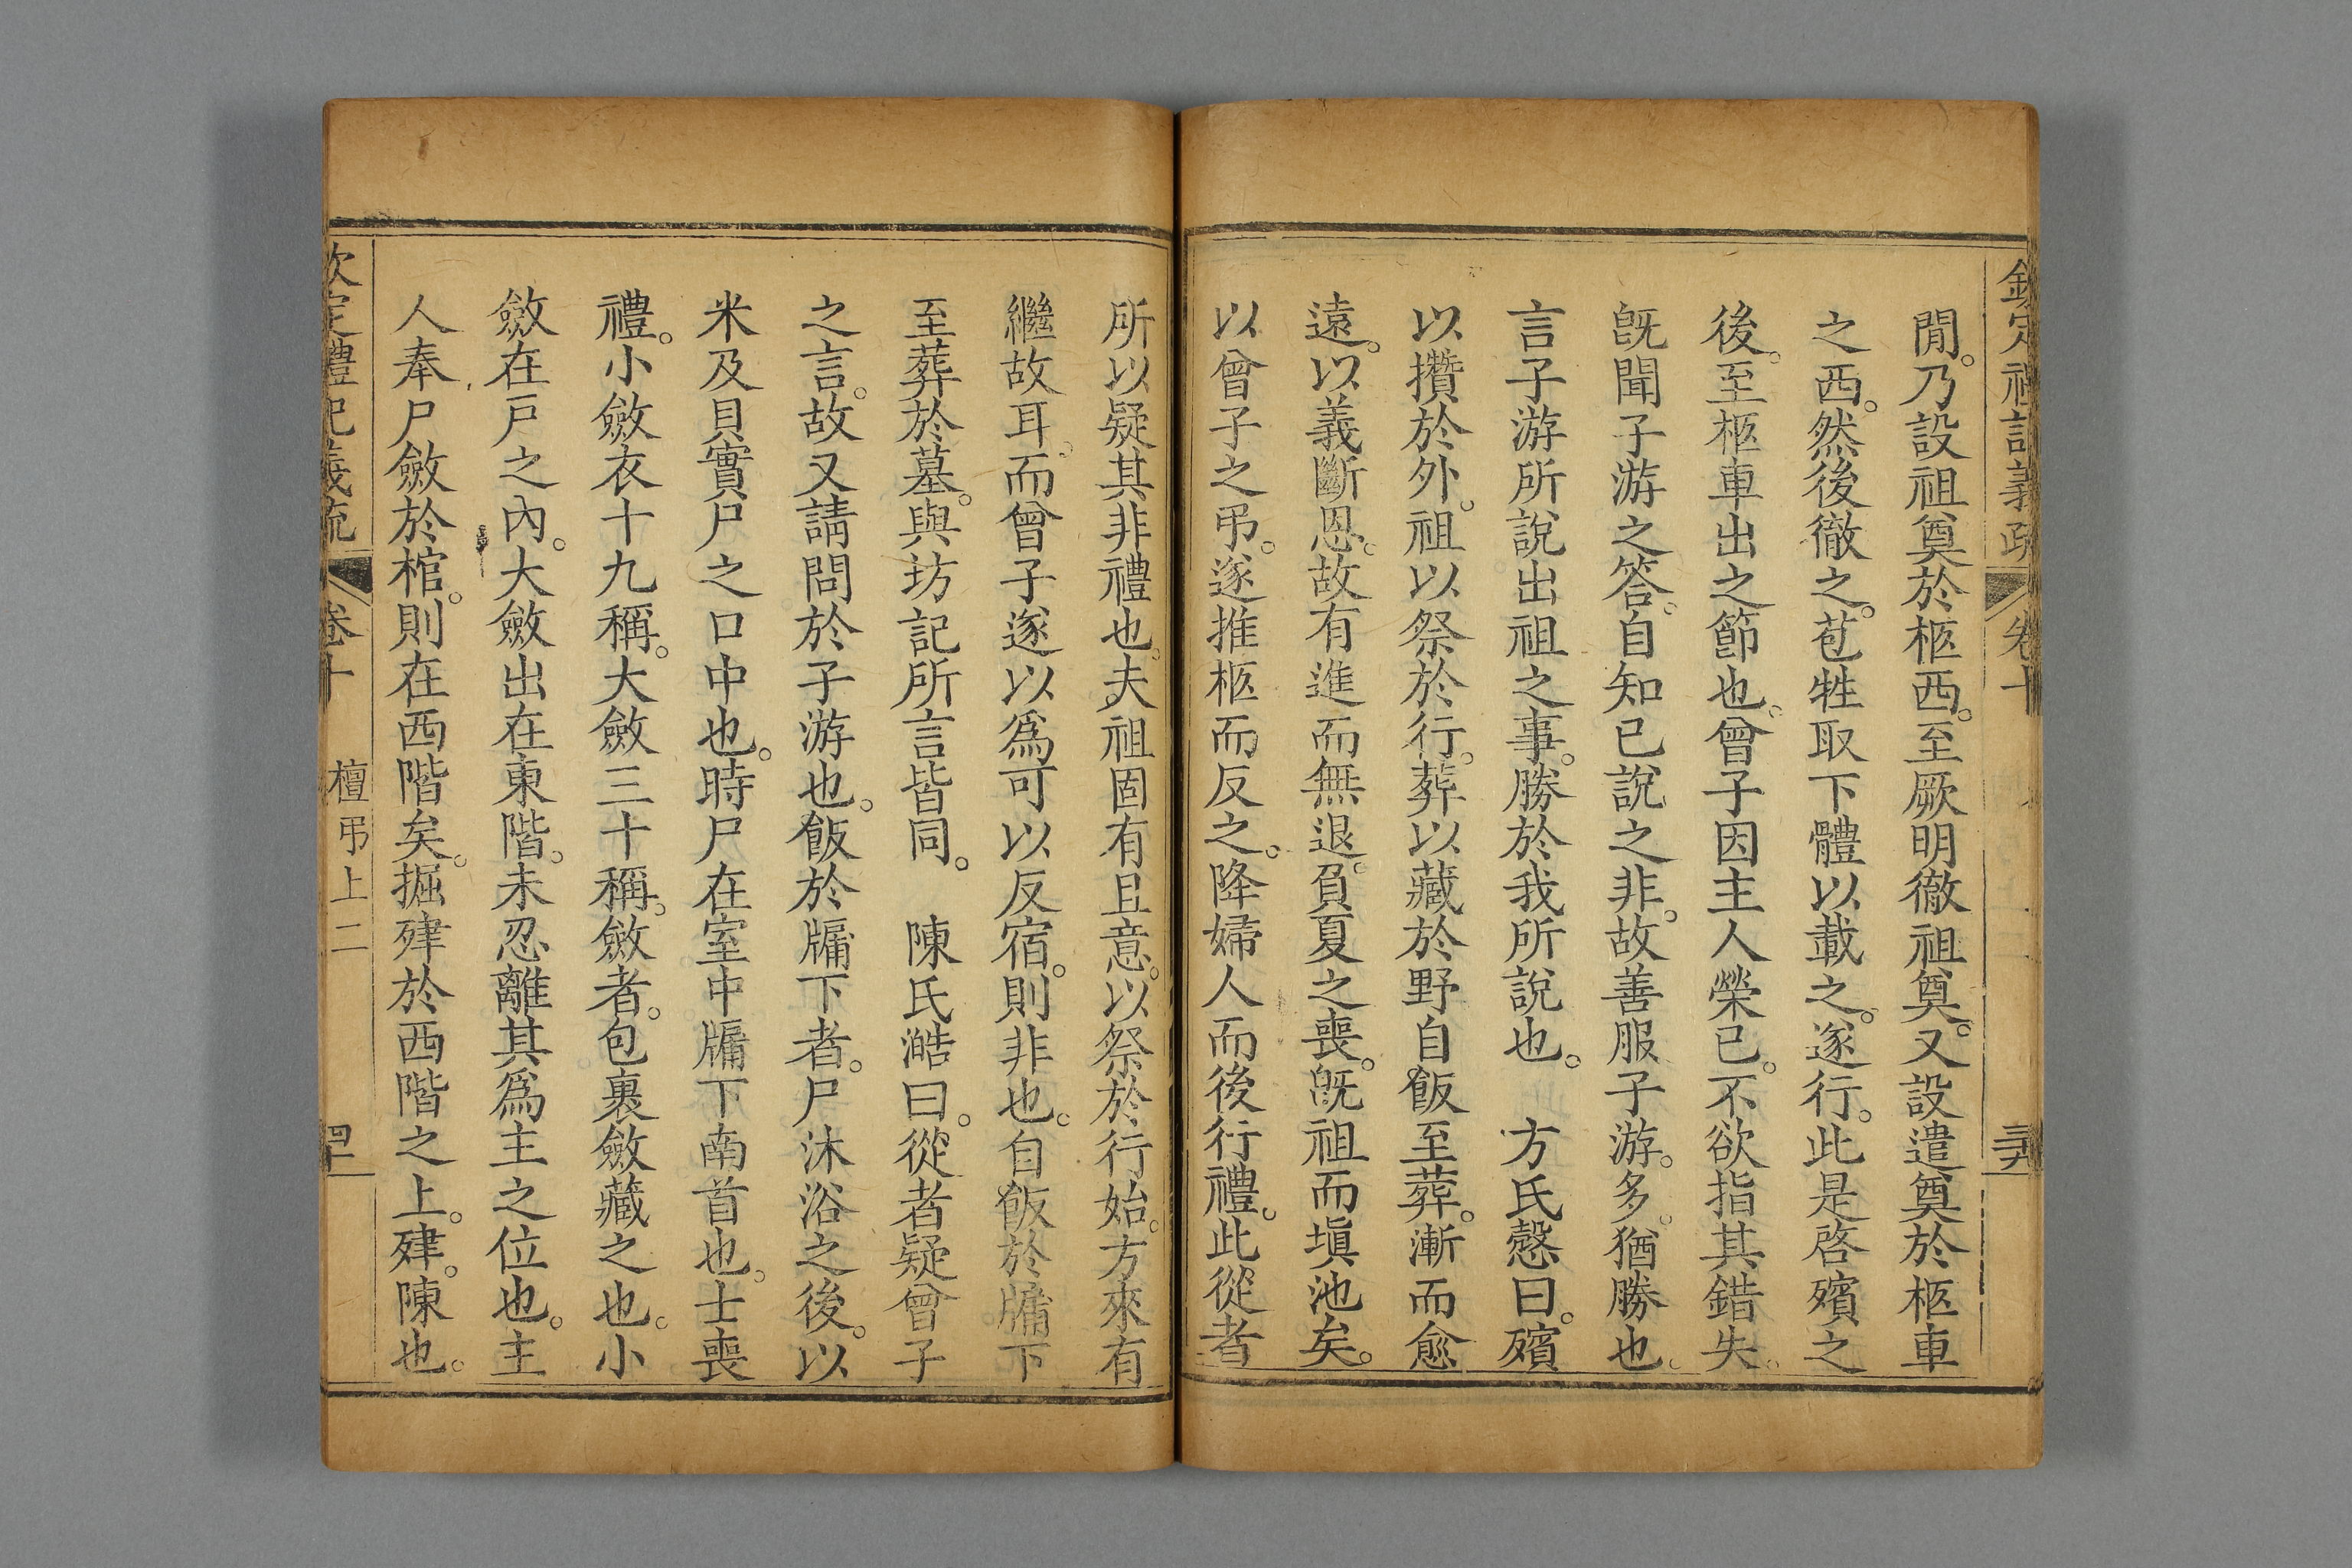 欽定禮記義疏 卷十 三九
閒。乃設祖奠於柩西。至厥明徹祖奠。又設遣奠於柩車
之西。然後徹之。苞牲取下體以載之。遂行。此是啓殯之
後。至柩車出之節也。曾子因主人榮已。不欲指其錯失。
旣聞子游之答。自知已說之非。故善服子游。多。猶勝也。
言子游所說出祖之事。勝於我所說也。 方氏慤曰。殯
以攢於外。祖以祭於行。葬以藏於野。自飯至葬。漸而愈
遠。以義斷恩。故有進而無退。負夏之喪。旣祖而塡池矣。
以曾子之弔。遂推柩而反之。降婦人而後行禮。此從者
所以疑其非禮也。夫祖固有且意。以祭於行始。方來有
繼故耳。而曾子遂以爲可以反宿。則非也。自飯於牖下
至葬於墓。與坊記所言皆同。 陳氏澔曰。從者疑曾子
之言。故又請問於子游也。飯於牖下者。尸沐浴之後。以
米及貝實尸之口中也。時尸在室中牖下南首也。士喪
禮。小斂衣十九稱。大斂三十稱。斂者。包裹斂藏之也。小
斂在戸之內。大斂出在東階。未忍離其爲主之位也。主
人奉尸斂於棺。則在西階矣。掘肂於西階之上。肂。陳也。
欽定禮記義疏 卷十 檀弓上二 四十